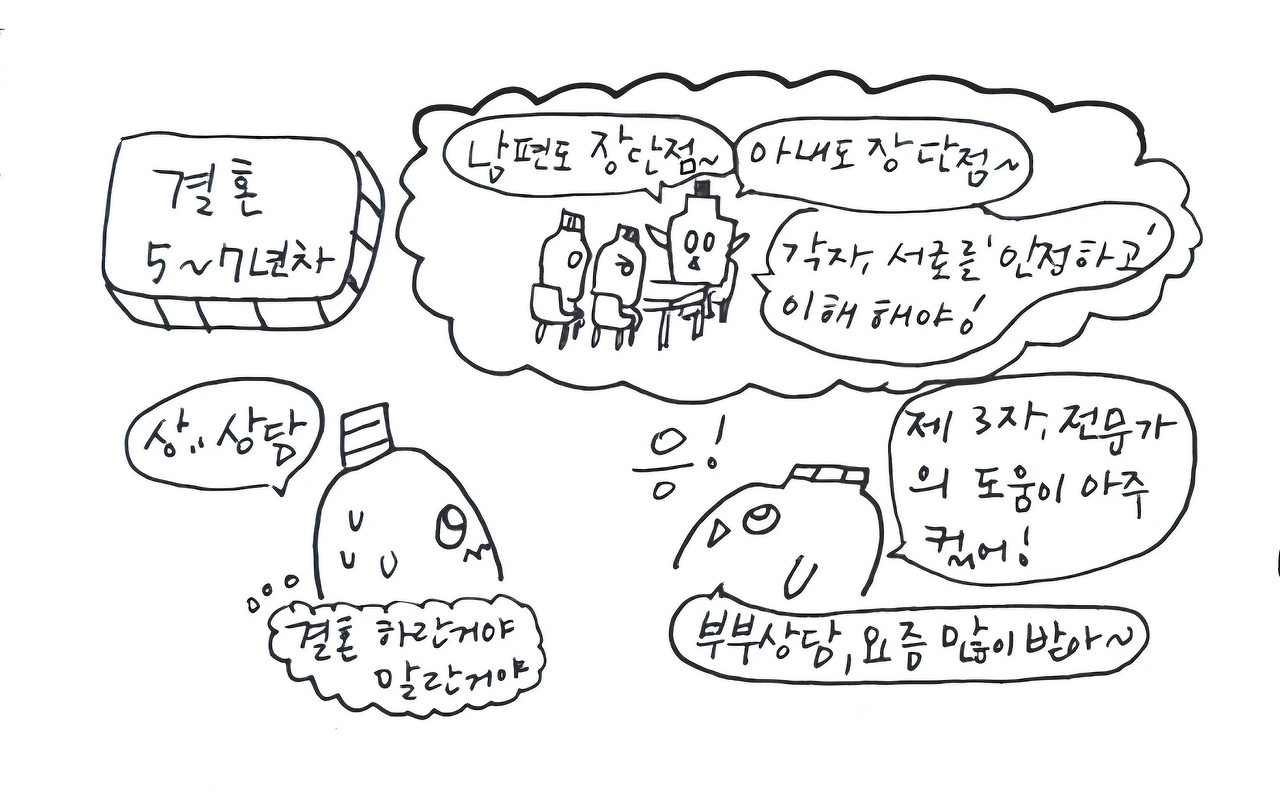 결혼
5~7년차
남편도 장단점~
아내도 장단점~
각자, 서로를 '인정하고'
이해 해야!
상,, 상담
응!
제 3자, 전문가
의 도움이 아주
컸어!
결혼 하란거야
말란거야
부부상담, 요즘 많이 받아~